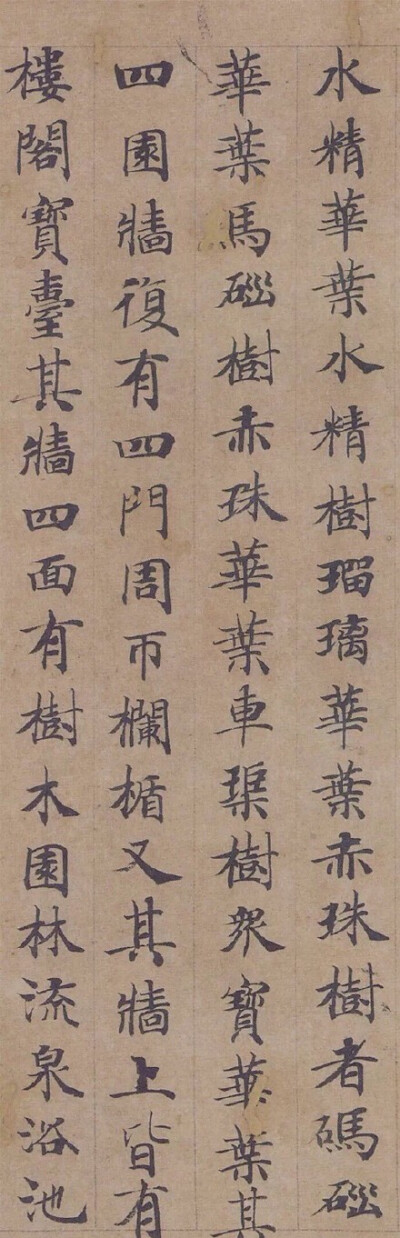 水精華葉水精樹瑠璃華葉赤珠樹者碼碯
華葉馬碯樹赤珠華葉車𤦲樹眾寶華葉其
四園牆復有四門周帀欄楯又其牆上皆有
樓閣寶臺其牆四面有樹木園林流泉浴池